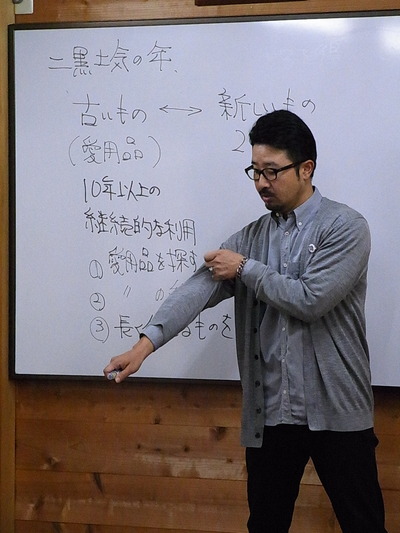 二黒土気の年、
古いもの ⟷ 新しいもの
(愛用品) 2
10年以上の
継続的な利用
① 愛用品を探す
② 〃 の
③ 長く るものを